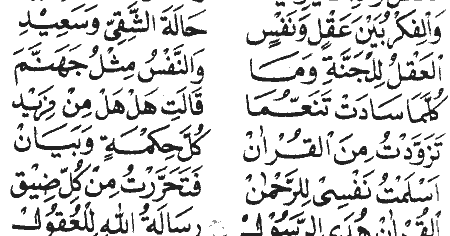 وَالْفِكْرُ بَيْنَ عَقْلٍ وَنَفْسٍ حَالَةَ الشَّقِيِّ وَسَعِيْدِ
اَلْعَقْلُ لِلْجَنَّةِ وَمَا وَالنَّفْسُ مِثْلُ جَهَنَّمَ
كُلَّمَا سَادَتْ تَنَعُّمَا قَالَتِ هَلْ هَلْ مِنْ مَزِيْدِ
تَزَوَّدْتُ مِنَ الْقُرْاٰنْ كُلَّ حِكْمَةٍ وَبَيَانْ
اَسْلَمْتُ نَفْسِيْ لِلرَّحْمٰنْ فَتَحَرَّرْتُ مِنْ كُلِّ ضِيْقْ
اَلْقُرْاٰنْ هُدَى الرَّسُوْلْ رِسَالَةُ اللهِ لِلْعُقُوْلْ